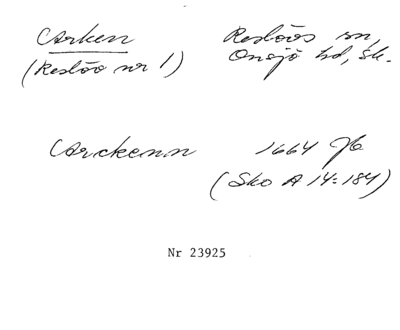 Arken Reslövs sn,
(Reslöv nr 1) Onsjö hd, Sk.
Arckenn 1664 Jb
(Sko A 14:184)
Nr 23925